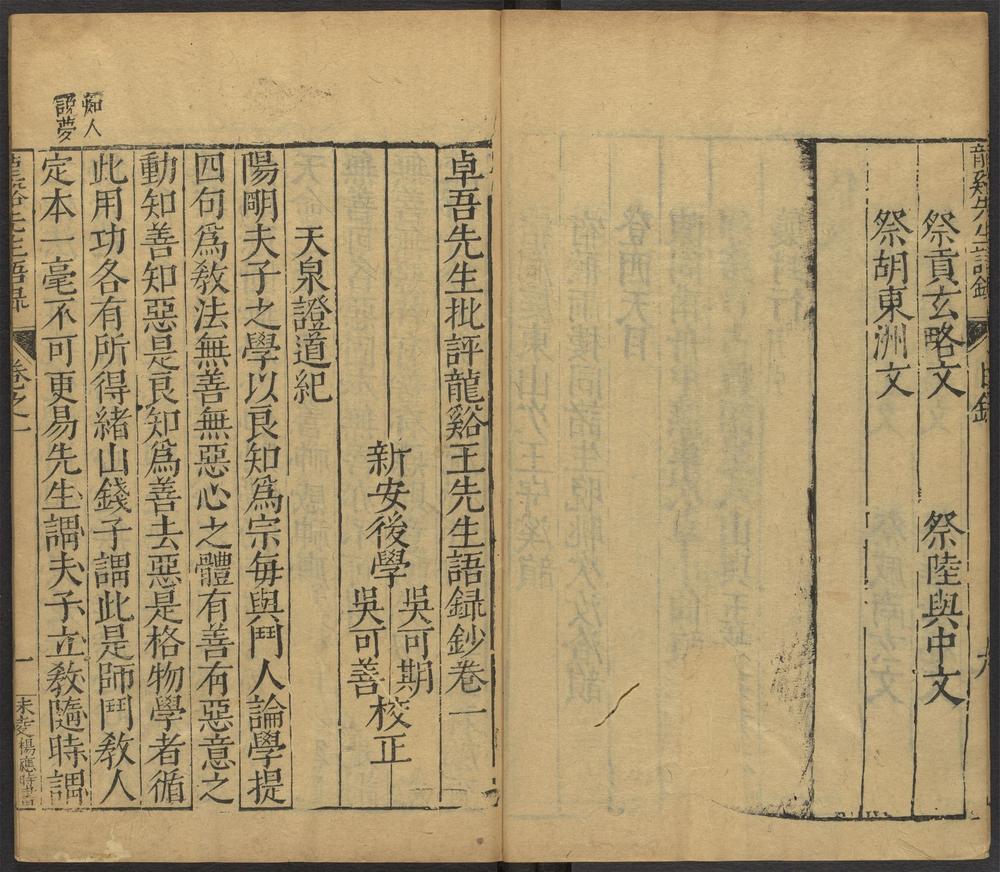 龍谿先生語錄 目錄 九
祭貢玄略文 祭陸與中文
祭胡東洲文
卓吾先生批評龍谿王先生語錄鈔卷一
新安後學 吳可期 吳可善 校正
天泉證道紀
陽明夫子之學以良知爲宗每與門人論學提
四句爲敎法無善無惡心之體有善有惡意之
動知善知惡是良知爲善去惡是格物學者循
此用功各有所得緒山錢子謂此是師門敎人
定本一毫不可更易先生謂夫子立敎隨時謂
知人
說夢
龍谿先生語錄 卷之一 一
楊應時書